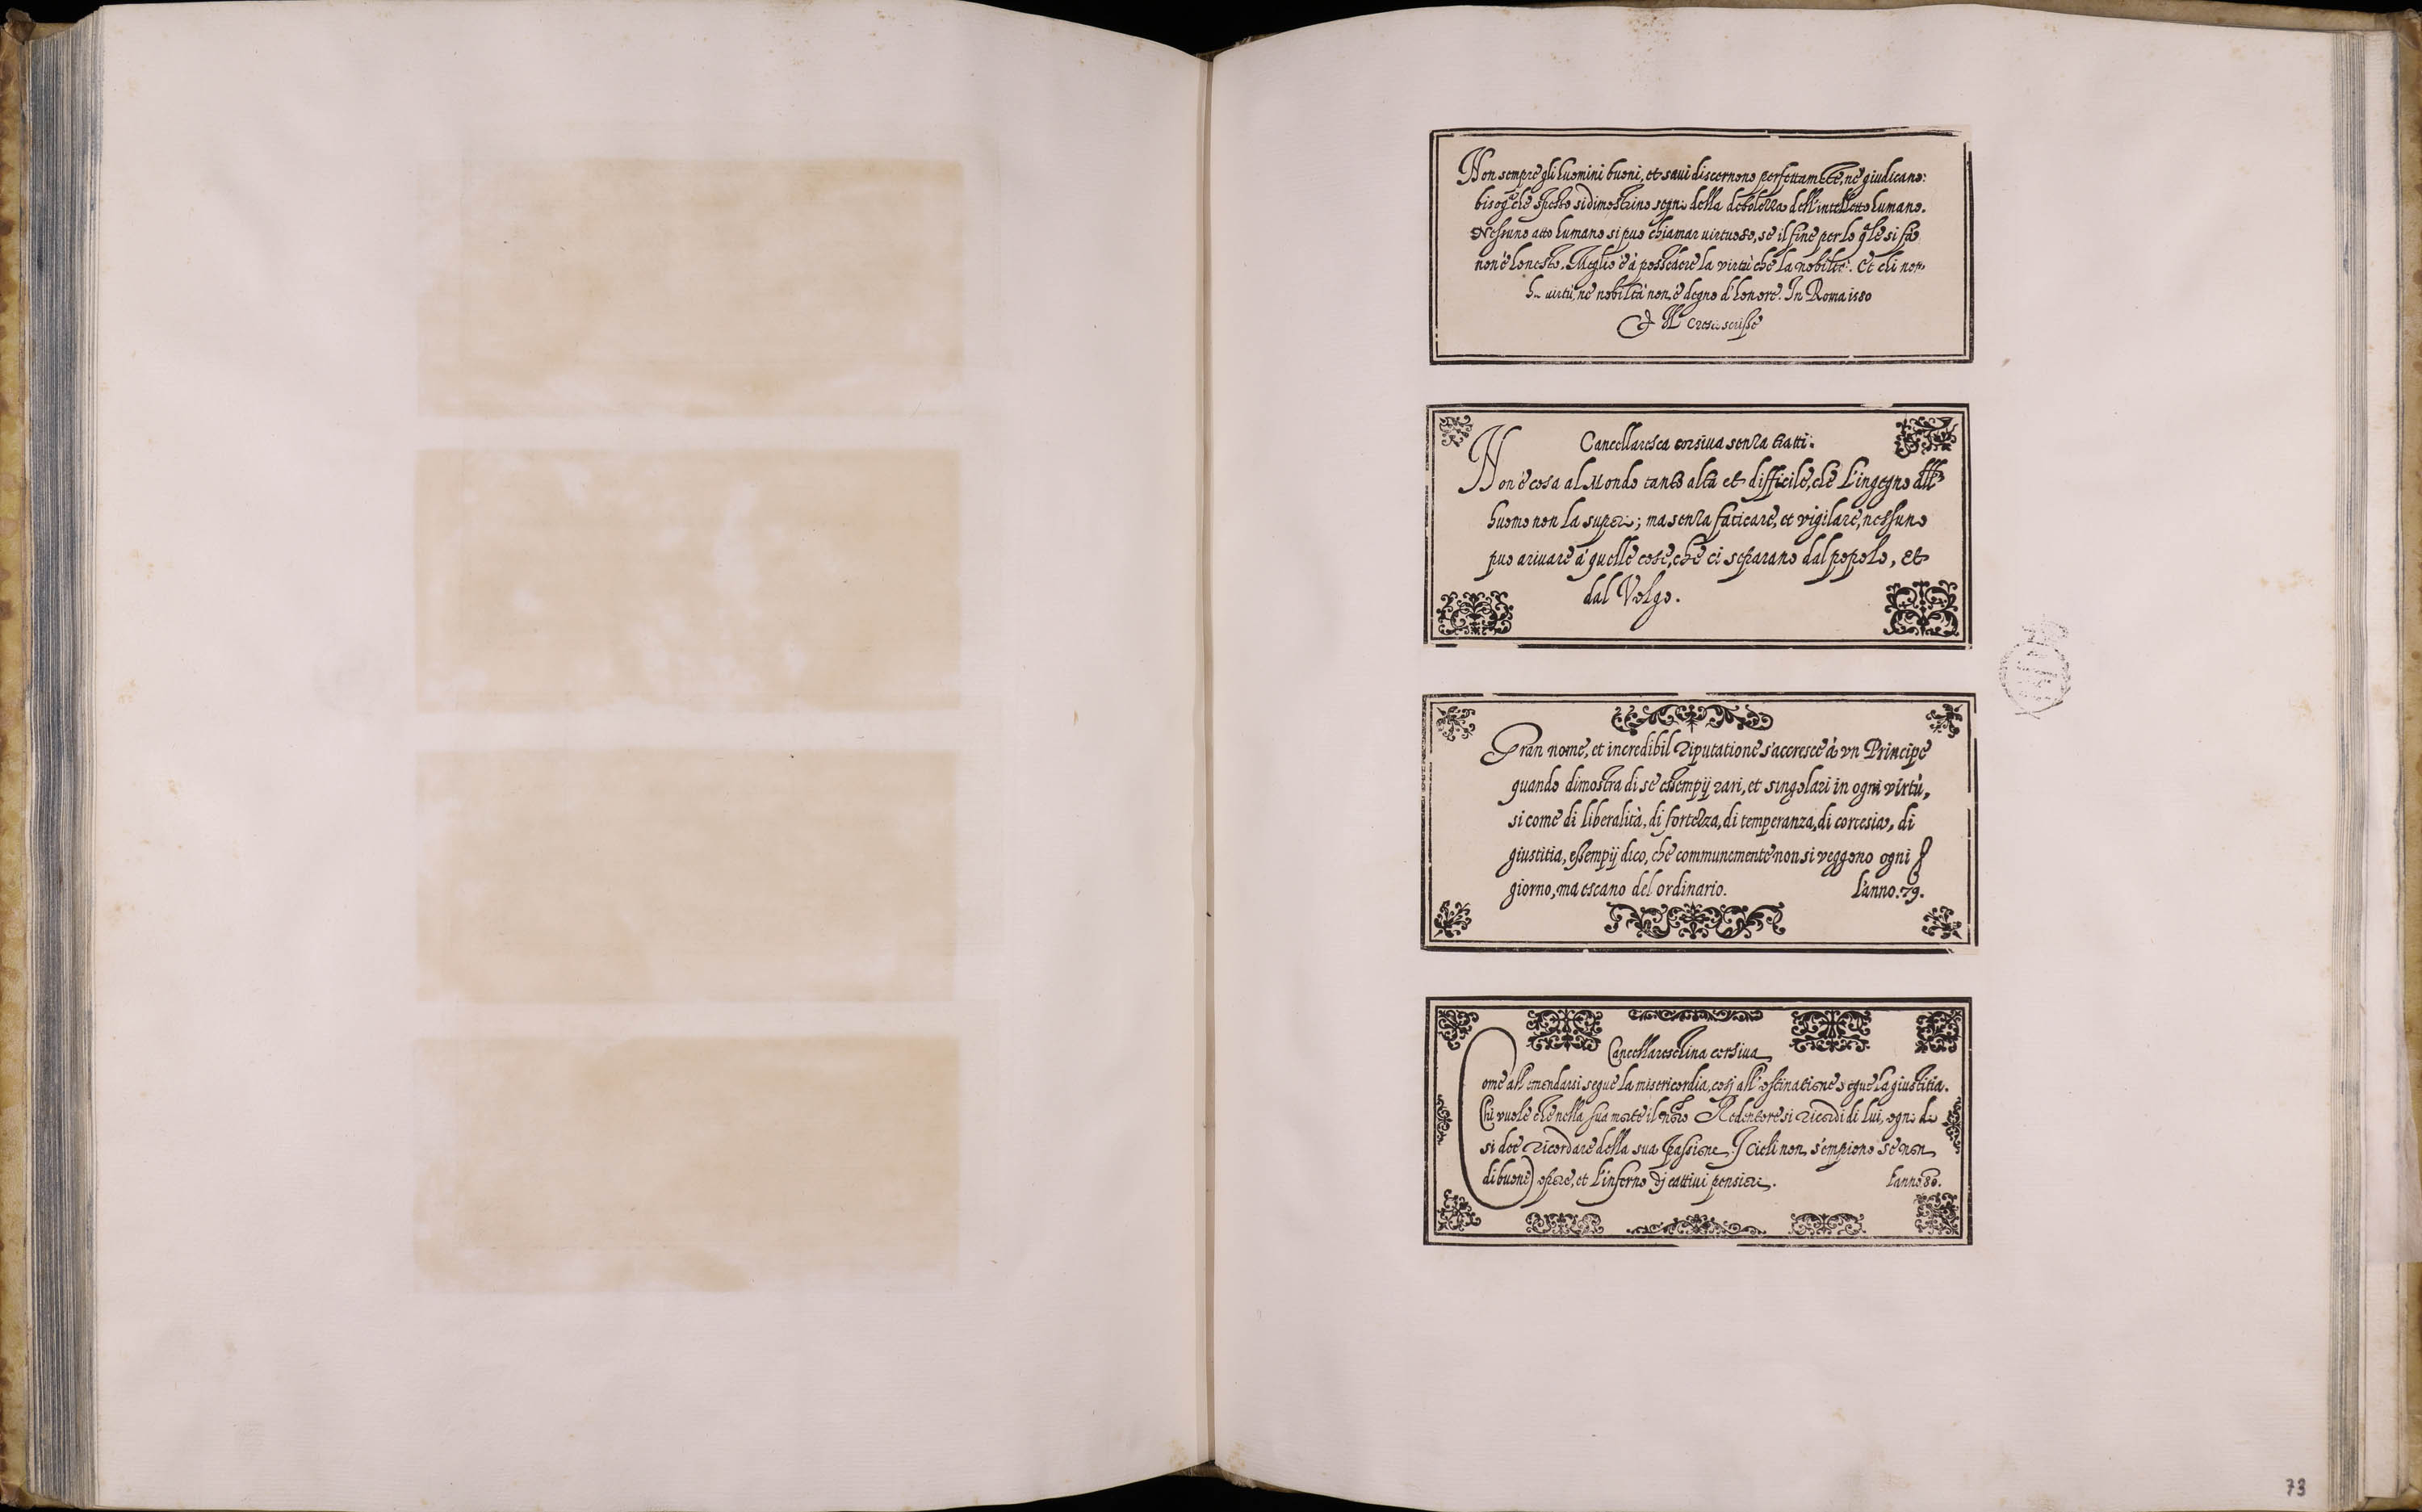 Non sempre gli huomini buoni, et savi discernono perfettamẽte, ne giudicano:
bisog̃ che spesso si dimostrino segni della debolezza dell'intelletto humano.
Nessuno atto humano si puo chiamar uirtuoso, se il fine per lo q̃le si fa
non è honesto. Meglio è à possedere la virtù che la nobiltà. Et chi non
ha uirtù, ne nobiltà non è degno d'honore. In Roma 1580
Cresci scrisse
Cancellaresca corsiua senza tratti.
Non è cosa al Mondo tanto alta et difficile, che l'ingegno dell'
huomo non la superi; ma senza faticare, et vigilare, nessuno
puo ariuare à quelle cose, che ci separano dal popolo, et
dal Volgo.
Gran nome, et incredibil riputatione s'accresce à vn Principe
quando dimostra di se essempij rari, et singolari in ogni virtù,
si come di liberalità, di fortezza, di temperanza, di cortesia, di
giustitia, essempij dico, che communemente non si veggono ogni
giorno, ma escano del ordinario. L'anno. 79.
Cancellareschina corsiua
Come all'emendarsi segue la misericordia, cosj all'ostinatione segue la giustitia.
Chi vuole che nella sua morte il nr̃o Redentore si ricordi di lui, ogni dì
si dee ricordare della sua passione. I cieli non s'empiono se non
di buone opere, et l'inferno dj cattiui pensieri. L'anno 80.
73